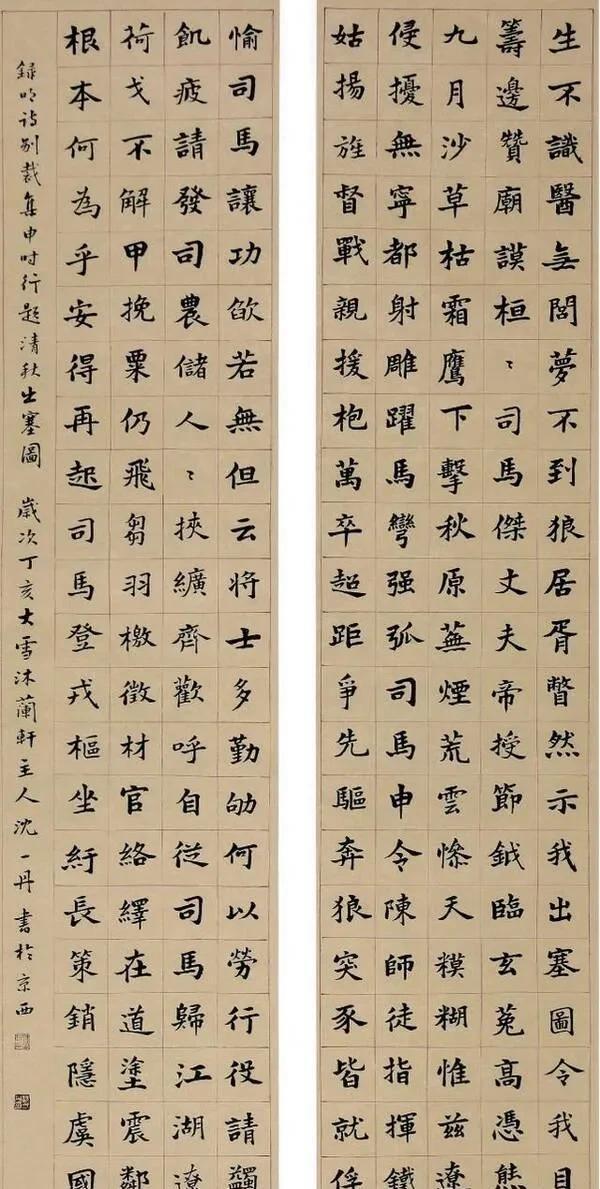 生不識醫無閭夢不到狼居胥瞥然示我出塞圖令我目
籌邊贊廟謨桓〻司馬傑丈夫帝授節鉞臨玄菟高憑熊
九月沙草枯霜鷹下擊秋原蕪煙荒雲憯天糢糊惟茲遼
侵擾無寧都射雕躍馬彎强弧司馬申令陳師徒指揮鐵
姑揚旌督戰親援枹萬卒超距爭先驅奔狼突豕皆就俘
愉司馬讓功欿若無但云将士多勤劬何以勞行役請蠲
飢疲請發司農儲人〻挾纊齊歡呼自從司馬歸江湖遼
荷戈不解甲挽粟仍飛芻羽檄徵材官絡繹在道塗震鄰
根本何為乎安得再起司馬登戎樞坐紆長策銷隱虞國
録明诗别裁集申时行題清秋出塞圖 歲次丁亥大雪沐蘭軒主人沈一丹書於京西